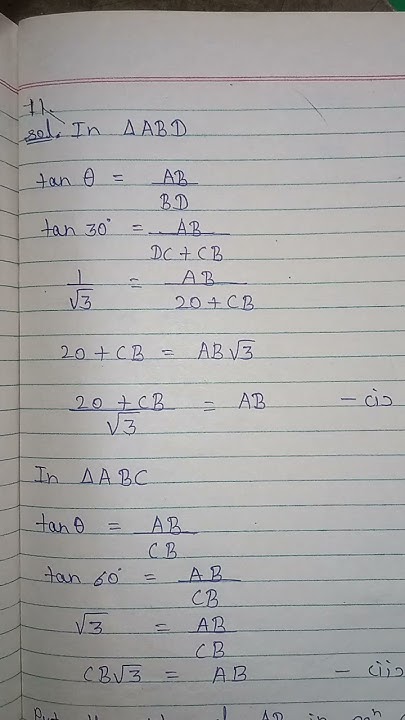 11.
sol. In ΔABD
tan θ = AB / BD
tan 30° = AB / DC + CB
1 / √3 = AB / 20 + CB
20 + CB = AB√3
20 + CB / √3 = AB - (i)
In ΔABC
tan θ = AB / CB
tan 60° = AB / CB
√3 = AB / CB
CB√3 = AB - (ii)